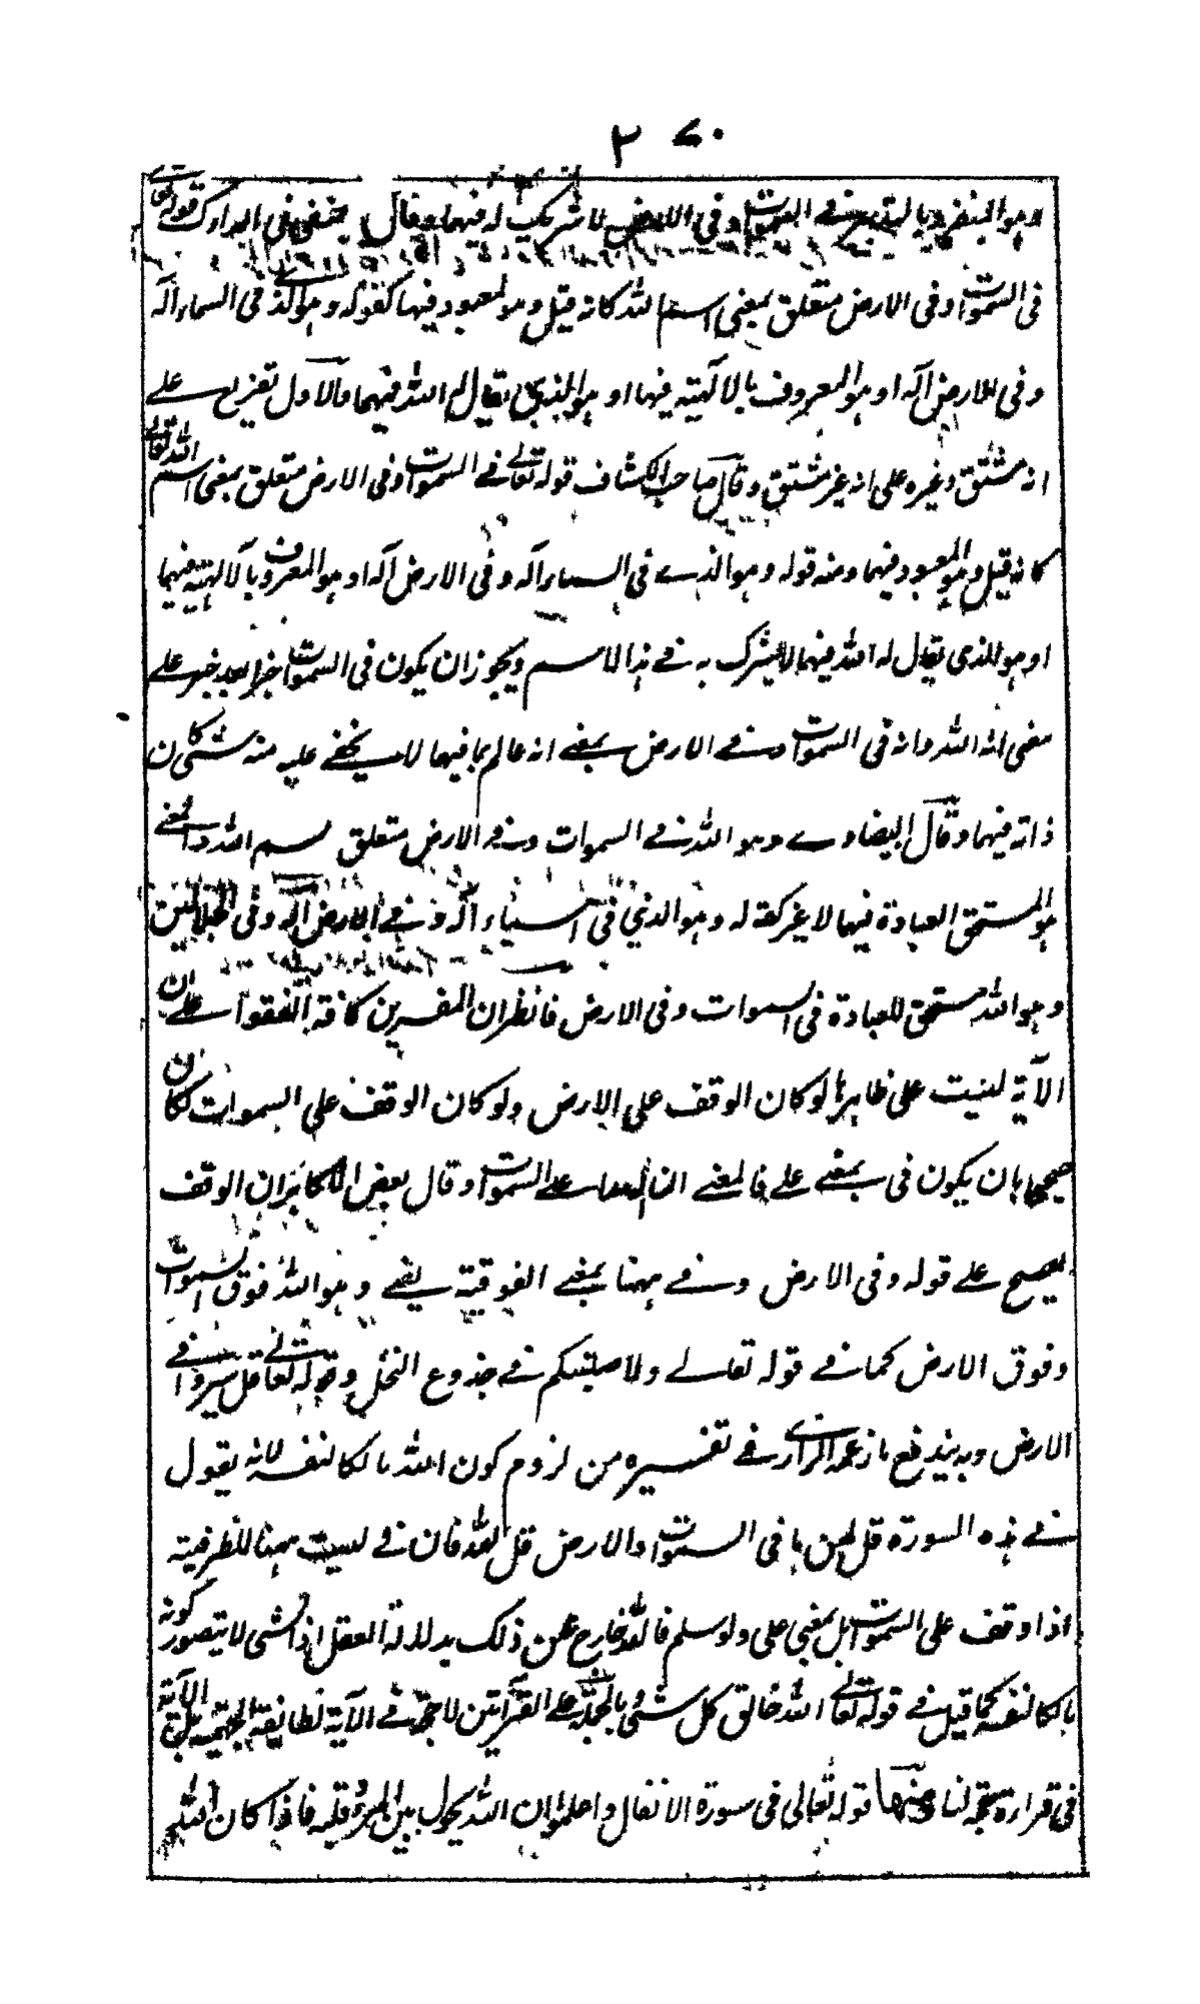 ٢٧٠
وهو المنفرد بالتدبير في السموات وفي الارض لا شريك له فيهما وقال النسفي في المدارك قوله تعالى
في السموات وفي الارض متعلق بمعنى اسم الله كانه قيل وهو المعبود فيها كقوله وهو الذي في السماء اله
وفي الارض اله او هو المعروف بالالهية فيها او هو الذي يقال له الله فيهما والاول تفريع على
انه مشتق وغيره على انه غير مشتق وقال صاحب الكشاف قوله تعالى في السموات وفي الارض متعلق بمعنى اسم الله تعالى
كانه قيل وهو المعبود فيهما ومنه قوله وهو الذي في السماء اله وفي الارض اله او هو المعروف بالالهية فيهما
او هو الذي يقال له الله فيهما لا يشرك به في هذا الاسم ويجوز ان يكون في السموات خبرا بعد خبر على
معنى انه الله وانه في السموات وفي الارض بمعنى انه عالم بما فيها لا يخفى عليه منه شئ كان
ذاته فيهما وقال البيضاوي وهو الله في السموات وفي الارض متعلق باسم الله والمعنى
هو المستحق العبادة فيها لا غير كقوله وهو الذي في السماء اله وفي الارض اله وفي الجلالين
وهو الله مستحق للعبادة في السموات وفي الارض فانظر ان المفسرين كافة اتفقوا على ان
الآية ليست على ظاهرها لو كان الوقف على الارض ولو كان الوقف على السموات لكان
صحيحا بان يكون في بمعنى على فالمعنى ان الله على السموات وقال بعض الاكابر ان الوقف
يصح على قوله وفي الارض وفي ههنا بمعنى الفوقية يعني وهو الله فوق السموات
وفوق الارض كما في قوله تعالى ولاصلبنكم في جذوع النخل وقوله تعالى قل سيروا في
الارض وبه يندفع ما زعمه الرازي في تفسيره من لزوم كون الله مالكا لنفسه لانه يقول
في هذه السورة قل لمن ما في السموات والارض قل لله فان في ليست ههنا للظرفية
اذا وقف على السموات بل بمعنى على ولو سلم فالله خارج عن ذلك بدلالة العقل اذ الشي لا يتصور كونه
مالكا لنفسه كما قيل في قوله تعالى الله خالق كل شئ وبالجملة على القرائتين لا حجة في الآية لطائفة الجهمية بل الآية
في قراءة حجة لنا ومنها قوله تعالى في سورة الانفال واعلموا ان الله يحول بين المرء وقلبه فاذا كان الله